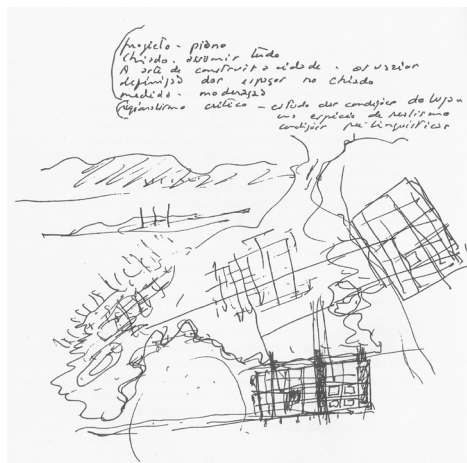 projecto - piano
chiado. assumir tudo
A arte de construir a cidade - os vazios
definição dos espaços no chiado
medida - moderação
regionalismo crítico - estudo das condições do lugar
uma espécie de realismo
condições pré-linguísticas